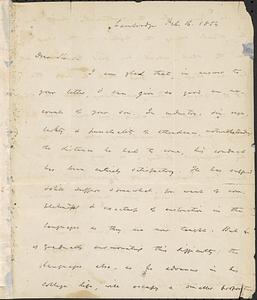 Cambridge Feb. 16. 1854
Dear Sir
I am glad that, in answer to
your letter, I can give so good an ac-
count of your son. In industry, in regu-
larity & punctuality of attendance, notwithstanding
the distance he had to come, his conduct
has been entirely satisfactory. He has
suffered somewhat, for want of
& exactness of instruction in the
languages as they are now taught. But he
is gradually surmounting this difficulty; the
languages also, as he advances in his
college life, will occupy a smaller proportion